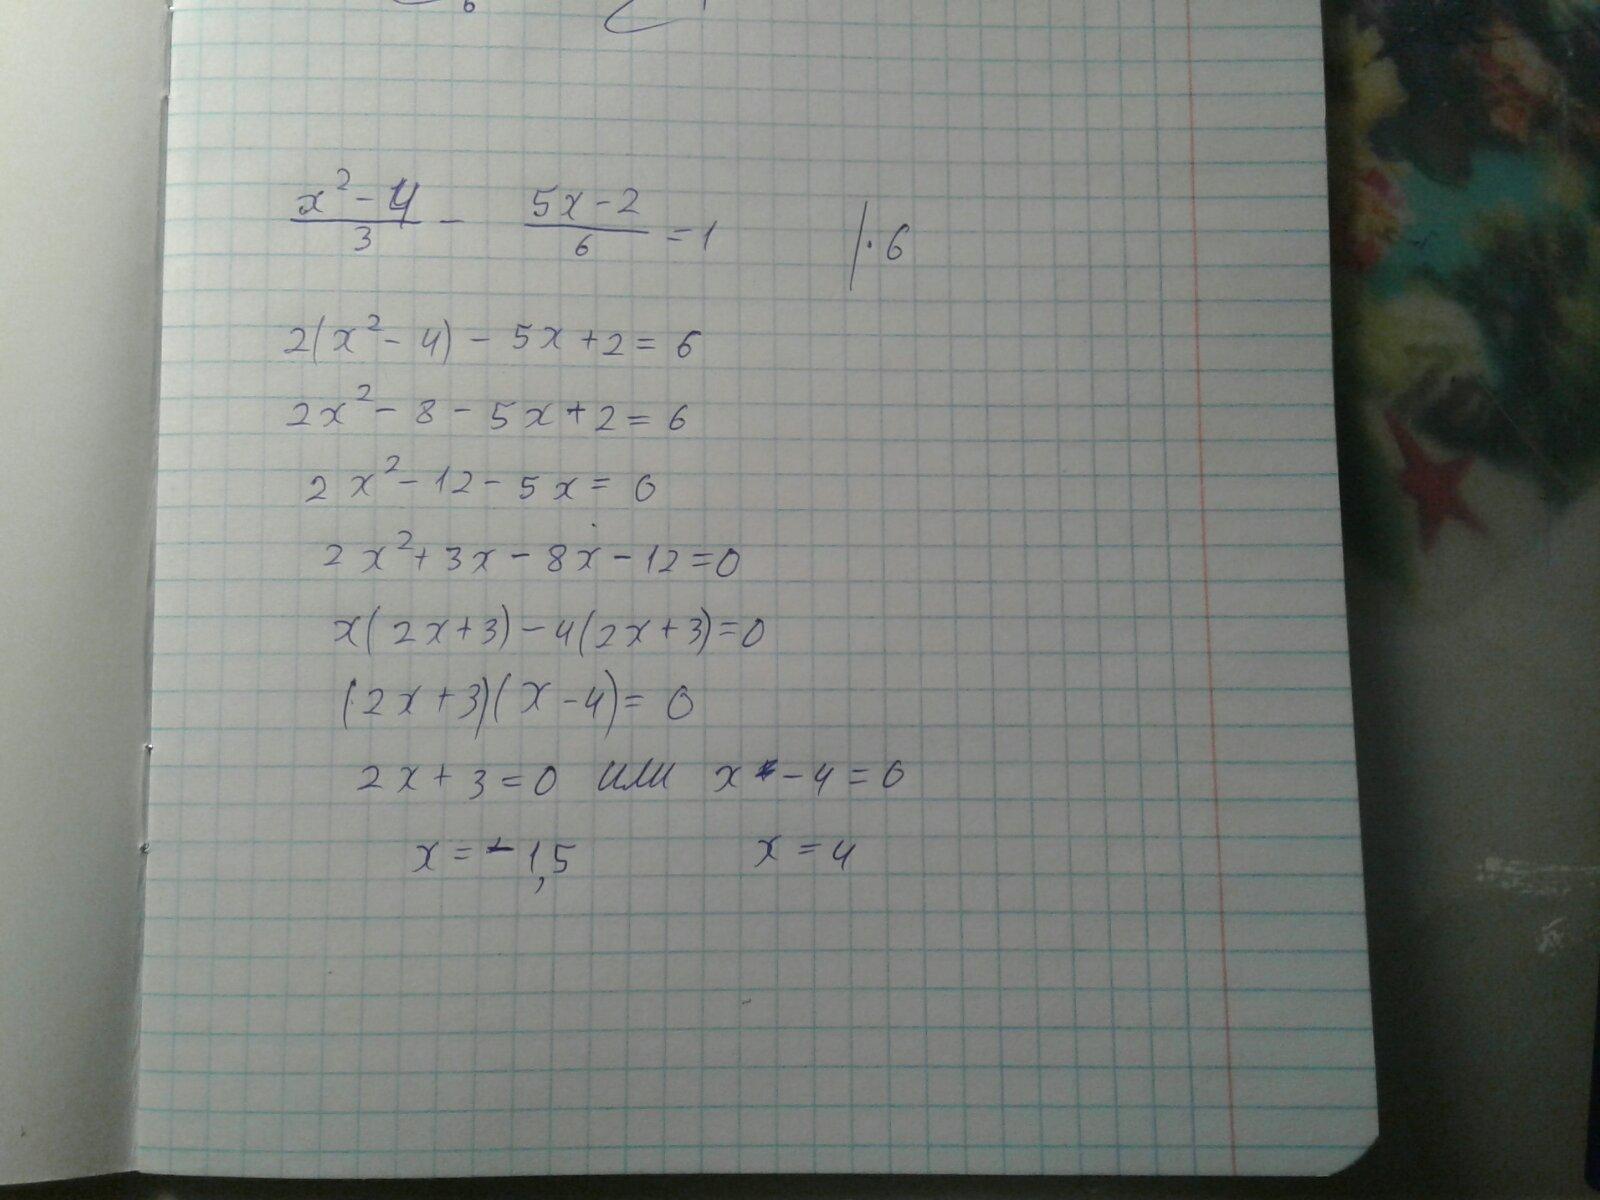 x² - 4 / 3 - 5x - 2 / 6 = 1 | · 6
2(x² - 4) - 5x + 2 = 6
2x² - 8 - 5x + 2 = 6
2x² - 12 - 5x = 0
2x² + 3x - 8x - 12 = 0
x(2x + 3) - 4(2x + 3) = 0
(2x + 3)(x - 4) = 0
2x + 3 = 0 или x - 4 = 0
x = -1,5 x = 4